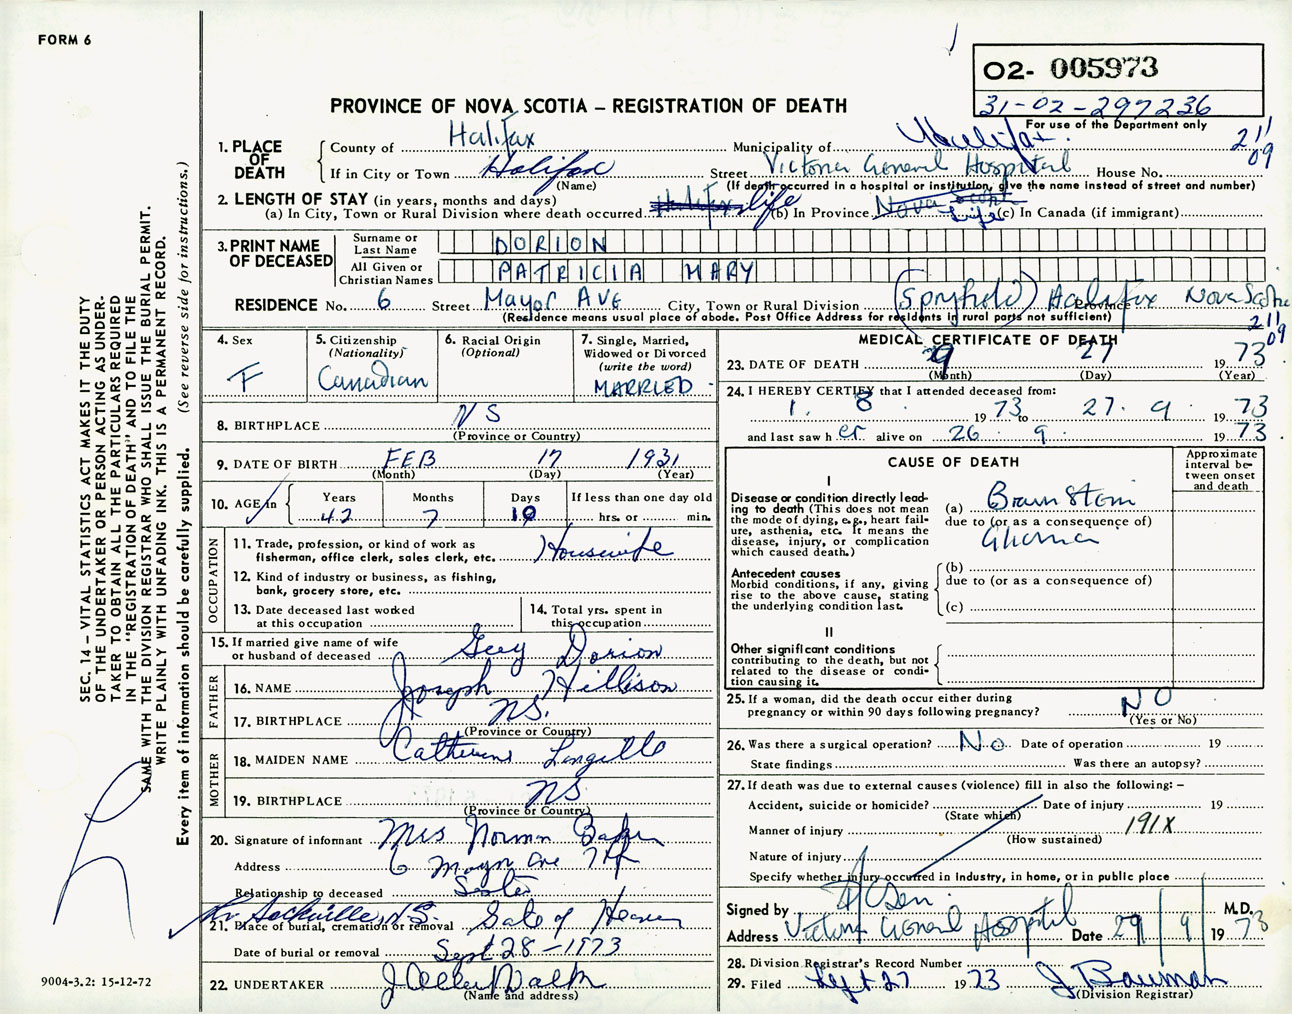 FORM 6
O2- 005973
31-02-297236
For use of the Department only
PROVINCE OF NOVA SCOTIA – REGISTRATION OF DEATH
1. PLACE OF DEATH
County of Halifax Municipality of Halifax
211 09
If in City or Town Halifax Street Victoria General Hospital House No.
(Name) (If death occurred in a hospital or institution, give the name instead of street and number)
2. LENGTH OF STAY (in years, months and days)
(a) In City, Town or Rural Division where death occurred Halifax life (b) In Province Nova Scotia Life (c) In Canada (if immigrant)
3. PRINT NAME OF DECEASED
Surname or Last Name DORION
All Given or Christian Names PATRICIA MARY
RESIDENCE No. 6 Street Mayor Ave City, Town or Rural Division (Spryfield) Halifax Province Nova Scotia
(Residence means usual place of abode. Post Office Address for residents in rural parts not sufficient)
211 09
4. Sex F
5. Citizenship (Nationality) Canadian
6. Racial Origin (Optional)
7. Single, Married, Widowed or Divorced (write the word) MARRIED
8. BIRTHPLACE NS
(Province or Country)
9. DATE OF BIRTH FEB 17 1931
(Month) (Day) (Year)
10. AGE in Years 42 Months 7 Days 10 If less than one day old hrs. or min.
OCCUPATION
11. Trade, profession, or kind of work as fisherman, office clerk, sales clerk, etc. Housewife
12. Kind of industry or business, as fishing, bank, grocery store, etc.
13. Date deceased last worked at this occupation
14. Total yrs. spent in this occupation
15. If married give name of wife or husband of deceased Guy Dorion
FATHER
16. NAME Joseph Hillison
17. BIRTHPLACE N.S.
(Province or Country)
MOTHER
18. MAIDEN NAME Catherine Langille
19. BIRTHPLACE NS
(Province or Country)
20. Signature of informant Mrs Norman Baker
Address 6 Mayor Ave Hfx
Relationship to deceased Sister
Lr Sackville, N.S.
21. Place of burial, cremation or removal Gate of Heaven
Date of burial or removal Sept 28 – 1973
22. UNDERTAKER J Allen Walker
(Name and address)
MEDICAL CERTIFICATE OF DEATH
23. DATE OF DEATH 9 27 1973
(Month) (Day) (Year)
24. I HEREBY CERTIFY that I attended deceased from:
1. 8. 1973 to 27. 9. 1973
and last saw her alive on 26 9. 1973
CAUSE OF DEATH
Approximate interval between onset and death
I
Disease or condition directly leading to death (This does not mean the mode of dying, e.g., heart failure, asthenia, etc. It means the disease, injury, or complication which caused death.)
(a) Brain Stem
due to (or as a consequence of)
Glioma
Antecedent causes
Morbid conditions, if any, giving rise to the above cause, stating the underlying condition last.
(b)
due to (or as a consequence of)
(c)
II
Other significant conditions
contributing to the death, but not related to the disease or condition causing it.
25. If a woman, did the death occur either during pregnancy or within 90 days following pregnancy? NO
(Yes or No)
26. Was there a surgical operation? No Date of operation 19
State findings Was there an autopsy?
27. If death was due to external causes (violence) fill in also the following: –
Accident, suicide or homicide? Date of injury 19
(State which)
Manner of injury 191X
(How sustained)
Nature of injury
Specify whether injury occurred in industry, in home, or in public place
Signed by M.D.
Address Victoria General Hospital Date 29 9 1973
28. Division Registrar's Record Number
29. Filed Sept 27 1973 J Bauman
(Division Registrar)
SEC. 14 – VITAL STATISTICS ACT MAKES IT THE DUTY
OF THE UNDERTAKER OR PERSON ACTING AS UNDER-
TAKER TO OBTAIN ALL THE PARTICULARS REQUIRED
IN THE "REGISTRATION OF DEATH" AND TO FILE THE
SAME WITH THE DIVISION REGISTRAR WHO SHALL ISSUE THE BURIAL PERMIT.
WRITE PLAINLY WITH UNFADING INK. THIS IS A PERMANENT RECORD.
Every item of information should be carefully supplied. (See reverse side for instructions.)
9004-3.2: 15-12-72